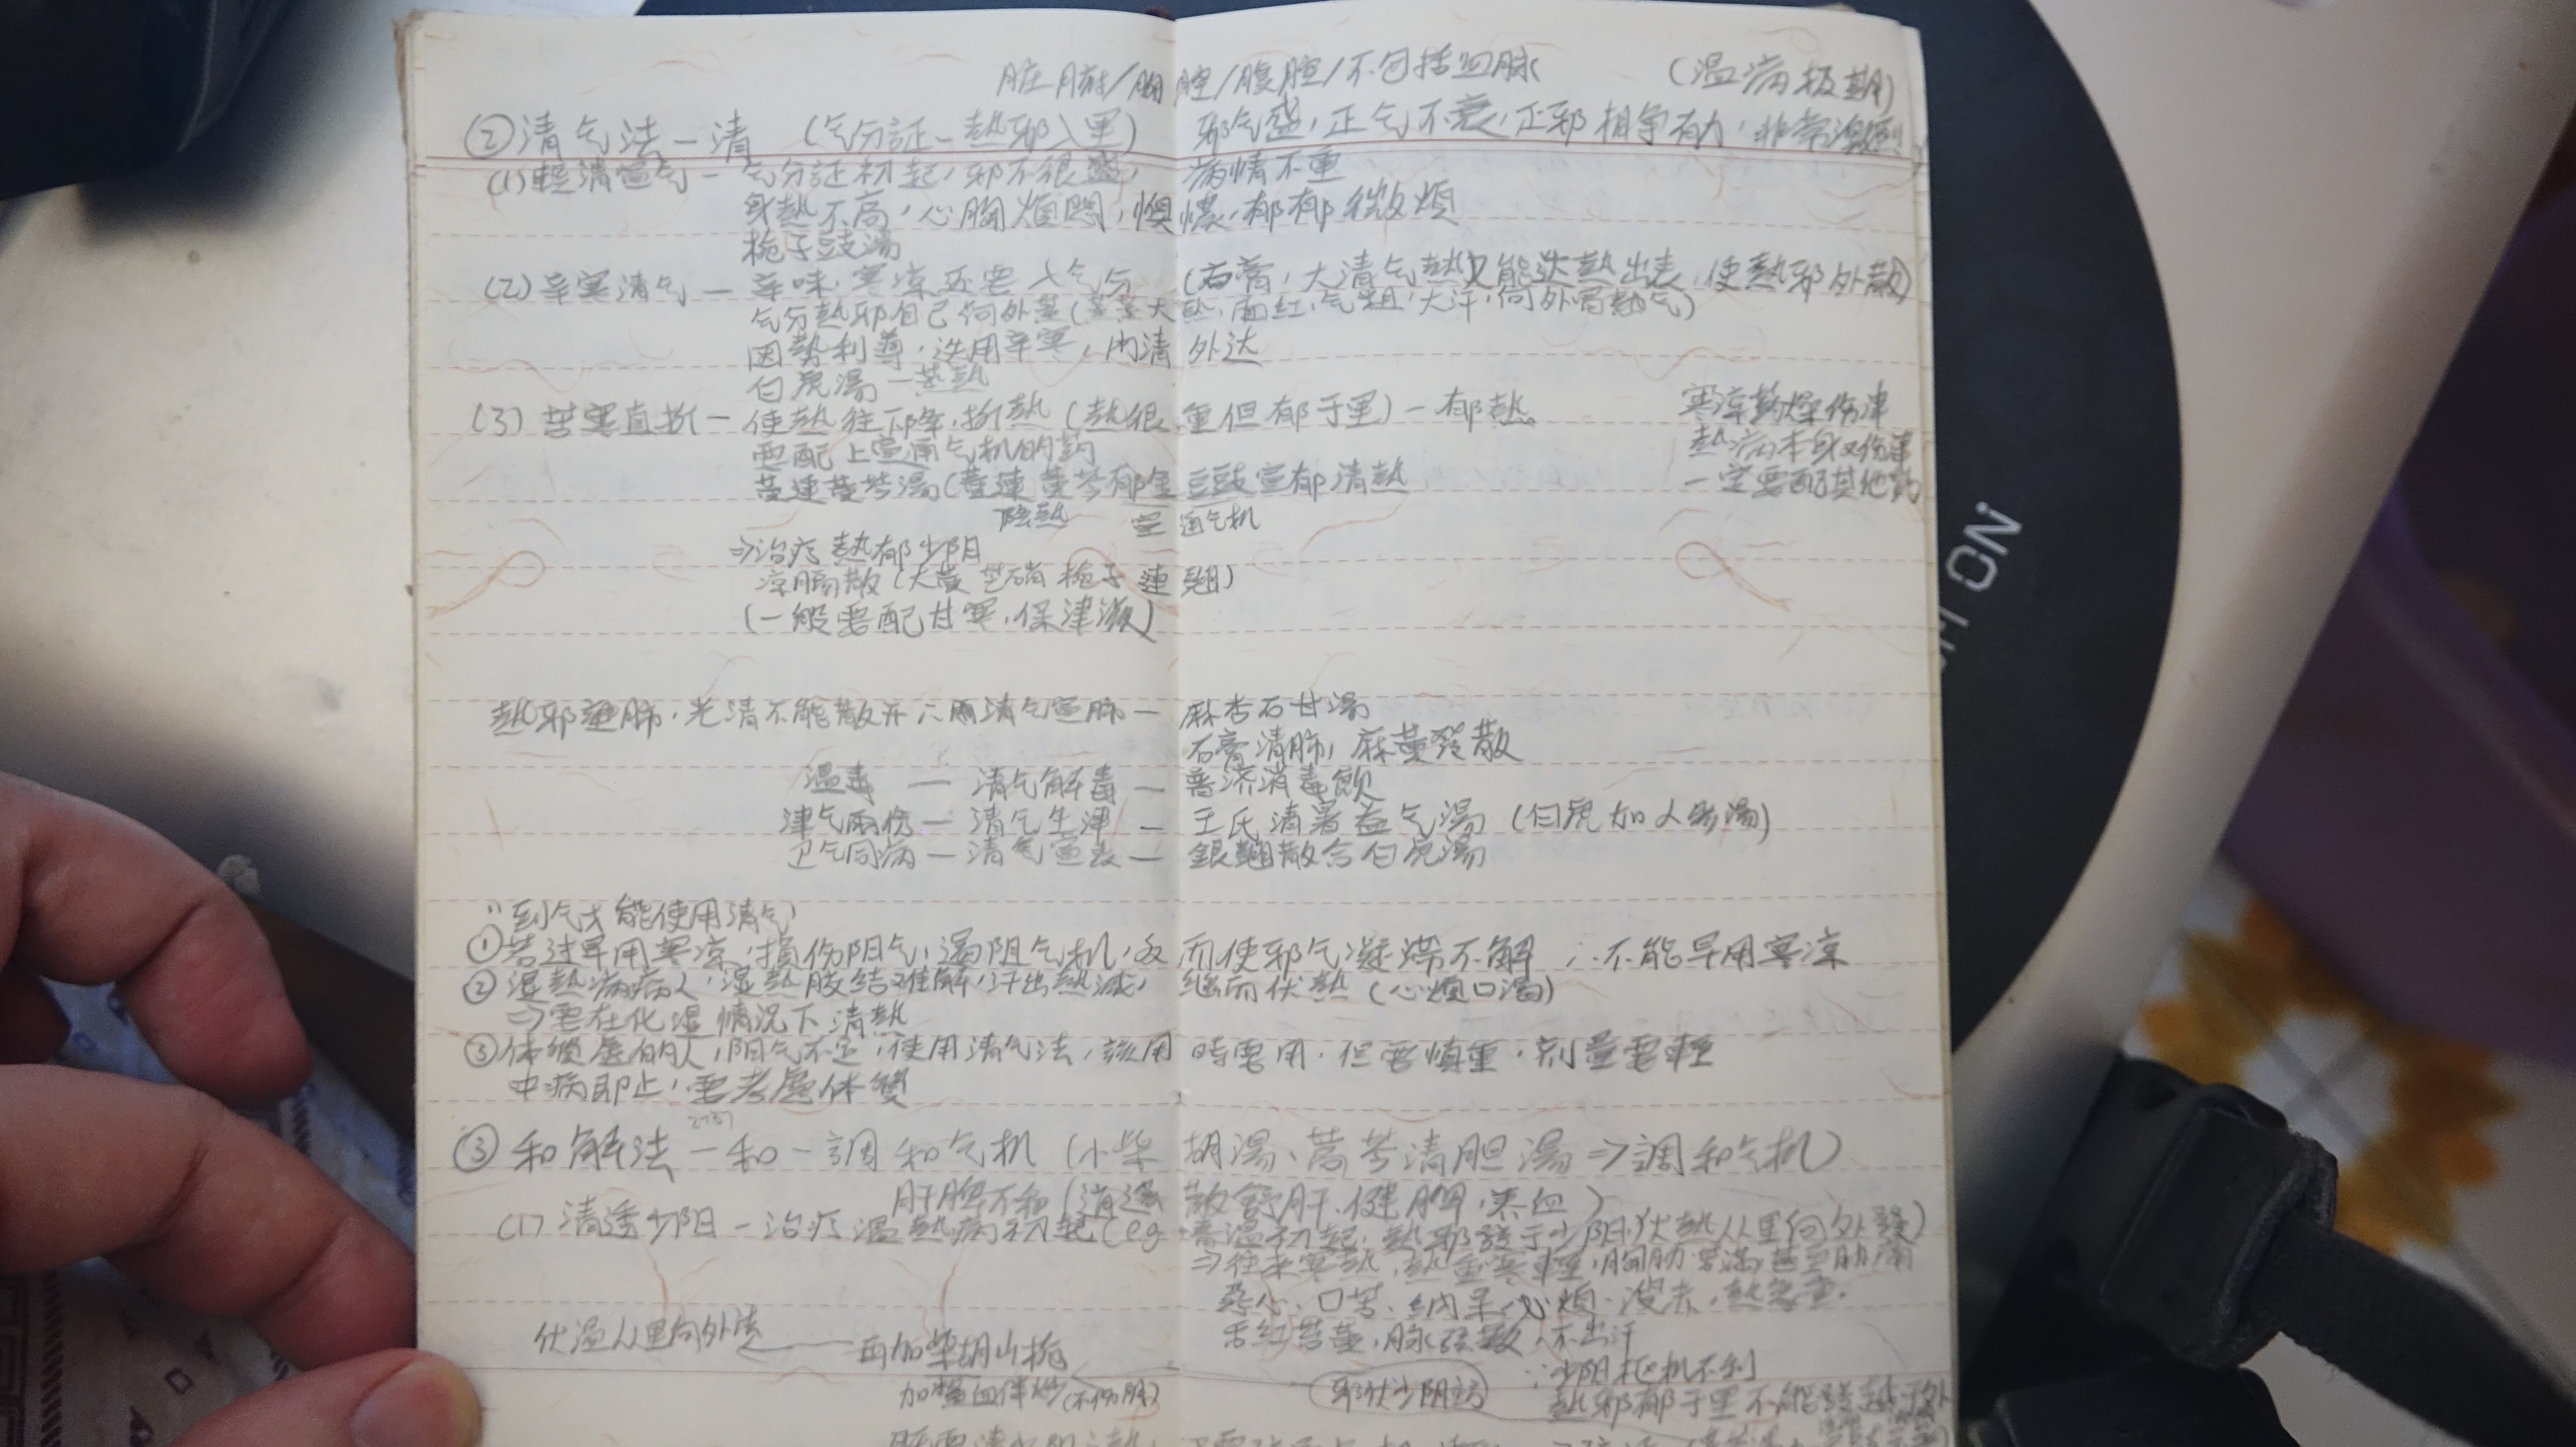 脏腑/胸腔/腹腔/不包括血脉 (温病极期)
②清气法—清 (气份証—熱邪入里) 邪气盛,正气不衰,正邪相争有力,非常激烈
(1)輕清宣气—气分証初起,邪不很盛,病情不重
身熱不高,心胸煩悶,懊憹,郁郁微煩
梔子豉湯
(2)辛寒清气—辛味,寒涼还要入气分 (石膏,大清气熱又能达熱出表,使熱邪外散)
气分熱邪自己向外蒸(蒸蒸大熱,面红,气粗,大汗,向外冒熱气)
因勢利導,选用辛寒,内清外达
白虎湯—蒸熱
(3)苦寒直折—使熱往下降,折熱(熱很重但郁于里)—郁熱
寒涼勤燥伤津
熱病本身又伤津
一定要配其他药
要配上宣通气机的药
黃連黃芩湯(黃連黃芩郁金豆豉宣郁清熱
除熱 宣通气机
⇒治疗熱郁少阳
凉膈散(大黃芒硝梔子連翹)
(一般要配甘寒,保津液)
熱邪壅肺,光清不能散开∴用清气宣肺—麻杏石甘湯
石膏清肺,麻黃發散
温毒—清气解毒—普济消毒飲
津气兩伤—清气生津—王氏清暑益气湯(白虎加人参湯)
卫气同病—清气宣表—銀翹散合白虎湯
"到气才能使用清气"
①若过早用寒涼,損伤阳气,遏阻气机,反而使邪气凝滞不解 ∴不能早用寒涼
②湿熱病病人,湿熱胶结难解,汗出熱减,继而伏熱(心煩口渴)
⇒要在化湿情况下清熱
③体質虚的人,阳气不足,使用清气法,該用時要用,但要慎重,剂量要輕
中病即止,要考虑体質
③和解法—和—調和气机(小柴胡湯、蒿芩清胆湯⇒調和气机)
肝脾不和(逍遥散舒肝,健脾,养血)
(1)清透少阳—治疗温熱病初起(eg 春温初起,熱邪發于少阳,伏熱从里向外發)
⇒往来寒熱,熱重寒輕,胸肋苦满,甚至肋痛
恶心、口苦、纳呆,心煩
舌红苔黃,脉弦数,不出汗
伏温从里向外透—再加柴胡山梔
∵少阳枢机不利
邪伏少阴方
熱邪郁于里不能發越于外